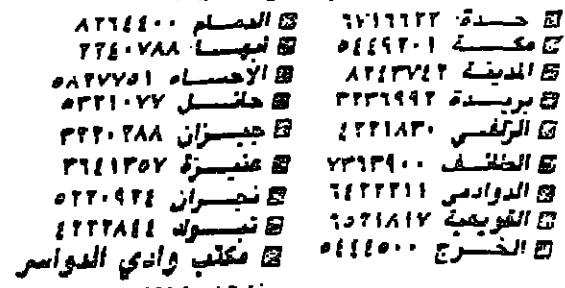 جـــدة ٦٧١٦٦٢٢
مكـــة ٥٤٤٩٢٠١
المدينة ٨٢٤٣٧٤٢
بريـــدة ٣٢٣٦٩٩٢
الزلفـــي ٤٢٢١٨٣٠
الطائـــف ٧٣٦٣٩٠٠
الدوادمي ٦٤٢٢٢١١
القويعية ٦٥٢١٨١٧
الخـــرج ٥٤٤٤٥٠٠
الدمـــام ٨٢٦٤٤٠٠
أبهـــا ٢٢٤٠٧٨٨
الإحســـاء ٥٨٢٧٧٥١
حائـــل ٥٣٢١٠٧٧
جيـــزان ٣٢٢٠٢٨٨
عنيـــزة ٣٦٤١٣٥٧
نجـــران ٥٢٢٠٩٢٤
تبـــوك ٤٢٢٢٨٤٤
مكتب وادي الدواسر